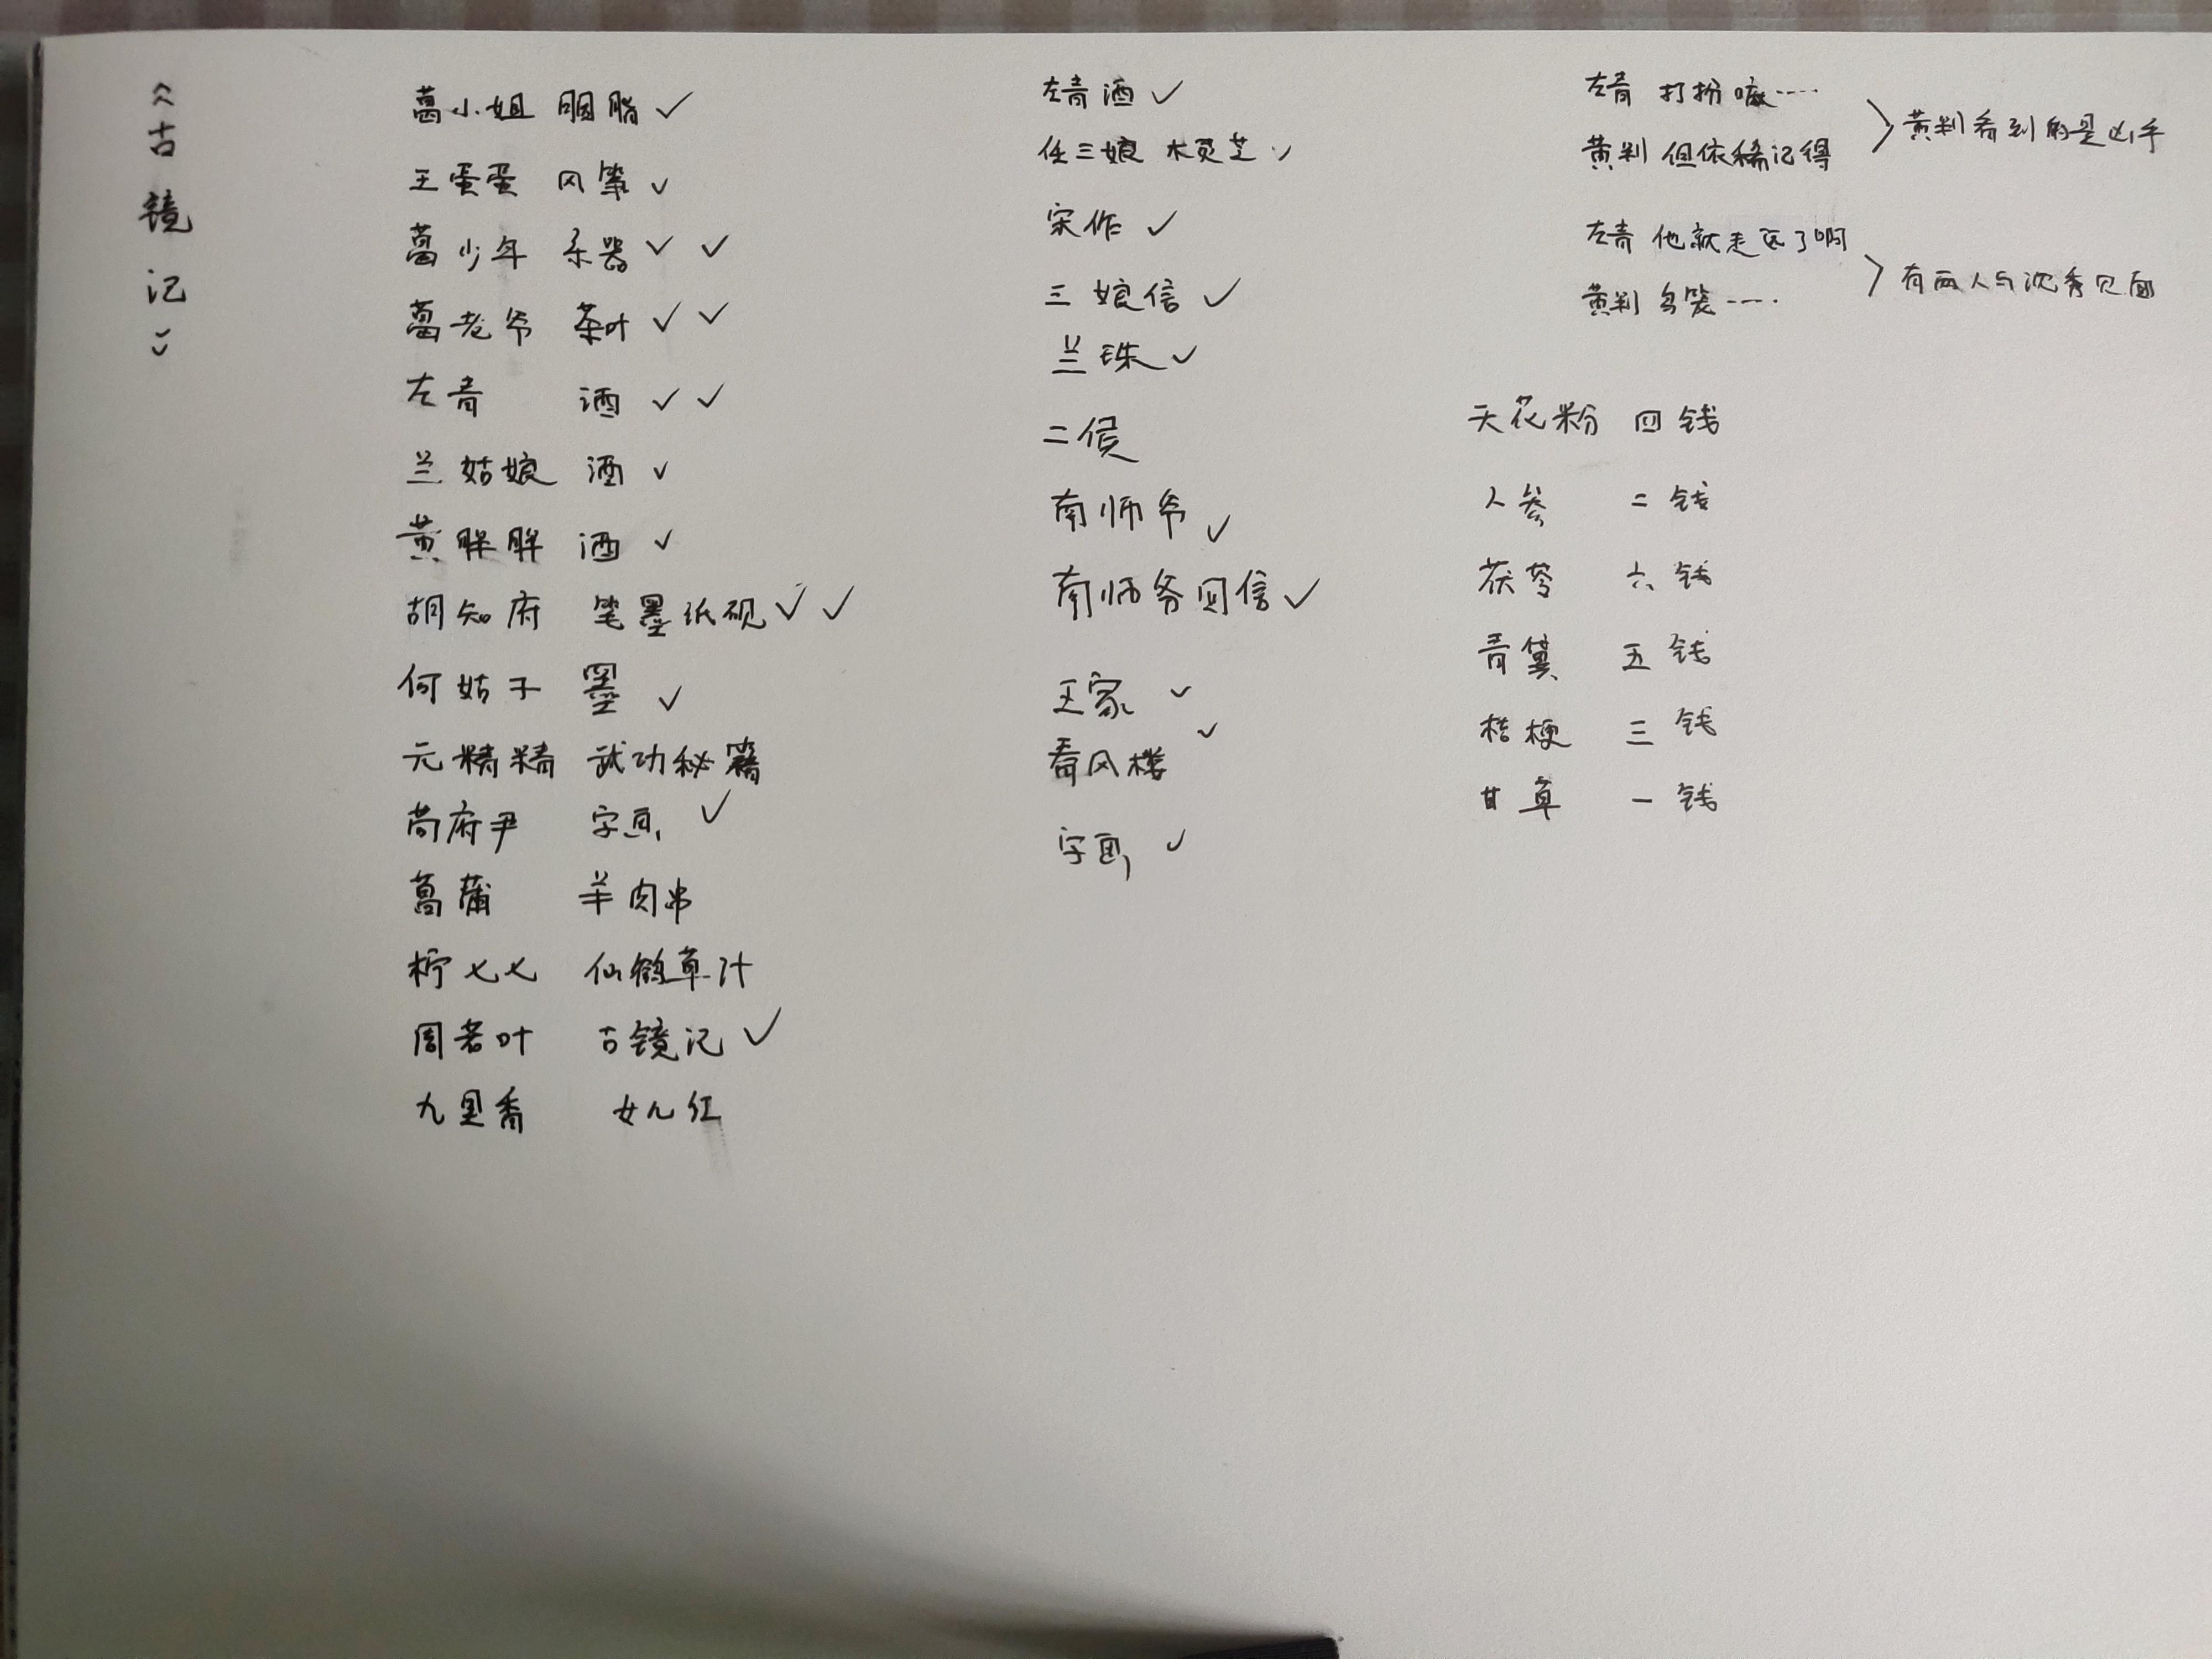 《古镜记》
葛小姐 胭脂 ✓
王蛋蛋 风筝 ✓
葛少年 乐器 ✓ ✓
葛老爷 茶叶 ✓ ✓
左青 酒 ✓ ✓
兰姑娘 酒 ✓
黄胖胖 酒 ✓
胡知府 笔墨纸砚 ✓ ✓
何姑子 墨 ✓
元精精 武功秘籍
苟府尹 字画 ✓
菖蒲 羊肉串
柠七七 仙鹤草汁
周若叶 古镜记 ✓
九里香 女儿红
左青酒 ✓
任三娘 木灵芝 ✓
宋作 ✓
三娘信 ✓
兰珠 ✓
二侯
南师爷 ✓
南师爷回信 ✓
王家 ✓
春风楼 ✓
字画 ✓
左青 打扮嘛····
黄判 但依稀记得
黄判看到的是凶手
左青 他就走远了啊
黄判 鸟笼····
有两人与沈秀见面
天花粉 四钱
人参 二钱
茯苓 六钱
青蒿 五钱
桔梗 三钱
甘草 一钱